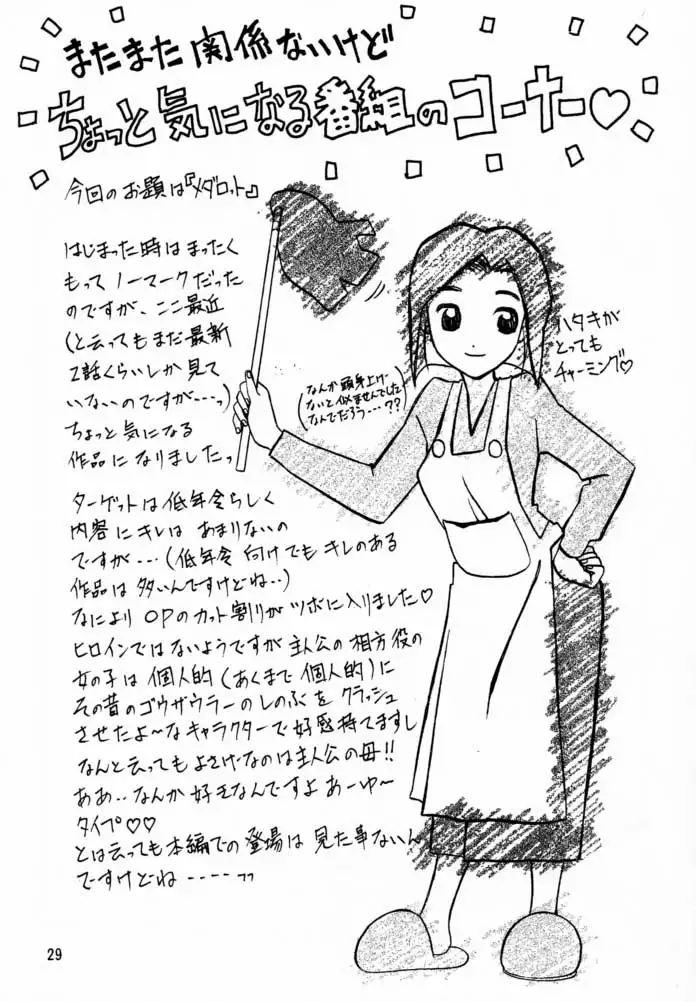 またまた関係ないけど
ちょっと気になる番組のコーナー♡
今回のお題は『メダロット』
はじまった時はまったく
もってノーマークだった
のですが、ここ最近
(と云ってもまだ最新
2話くらいしか見て
いないのですが---っ)
ちょっと気になる
作品になりましたっ
(なんか頭身上げ
ないと似ませんでした
なんでだろう…??)
ハタキが
とっても
チャーミング♡
ターゲットは低年令らしく
内容にキレはあまりないの
ですが…(低年令向けでもキレのある
作品は多いんですけどね..)
なによりOPのカット割りがツボに入りました♡
ヒロインではないようですが主人公の相方役の
女の子は個人的(あくまで個人的)に
その昔のゴウザウラーのしのぶをクラッシュ
させたよ〜なキャラクターで好感持てますし
なんと云ってもよさげなのは主人公の母!!
ああ..なんか好きなんですよあーゆ〜
タイプ♡♡
とは云っても本編での登場は見た事ないん
ですけどね----っっ
29